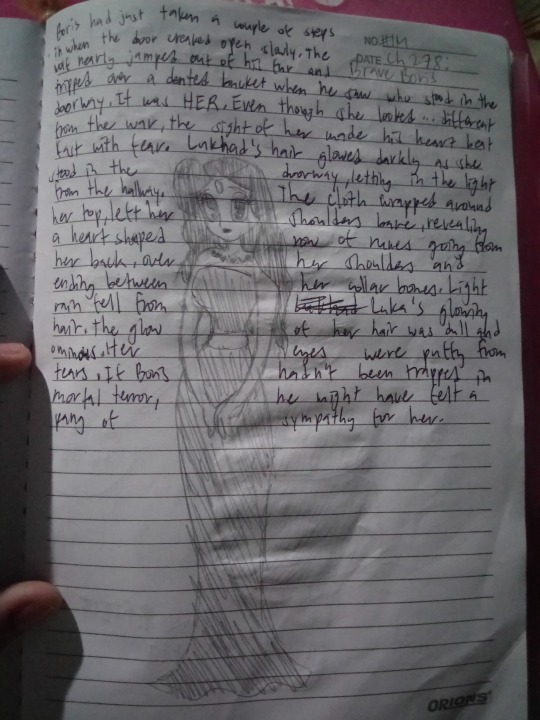 Boris had just taken a couple of steps
in when the door creaked open slowly. The
NO. #14
nearly jumped out of his fur and
DATE Ch 278:
Brave Boris
tripped over a dented bucket when he saw who stood in the
doorway. It was HER. Even though she looked... different
from the war, the sight of her made his heart beat
fast with fear. Lukhad's hair glowed darkly as she
stood in the doorway, letting in the light
from the hallway. The cloth wrapped around
her top, left her shoulders bare, revealing
a heart shaped row of runes going from
her back, over her shoulders and
ending between her collar bones. Light
rain fell from Luka's glowing
hair, the glow of her hair was dull and
ominous. Her eyes were puffy from
tears. If Boris hadn't been trapped in
mortal terror, he might have felt a
pang of sympathy for her.
ORIONS